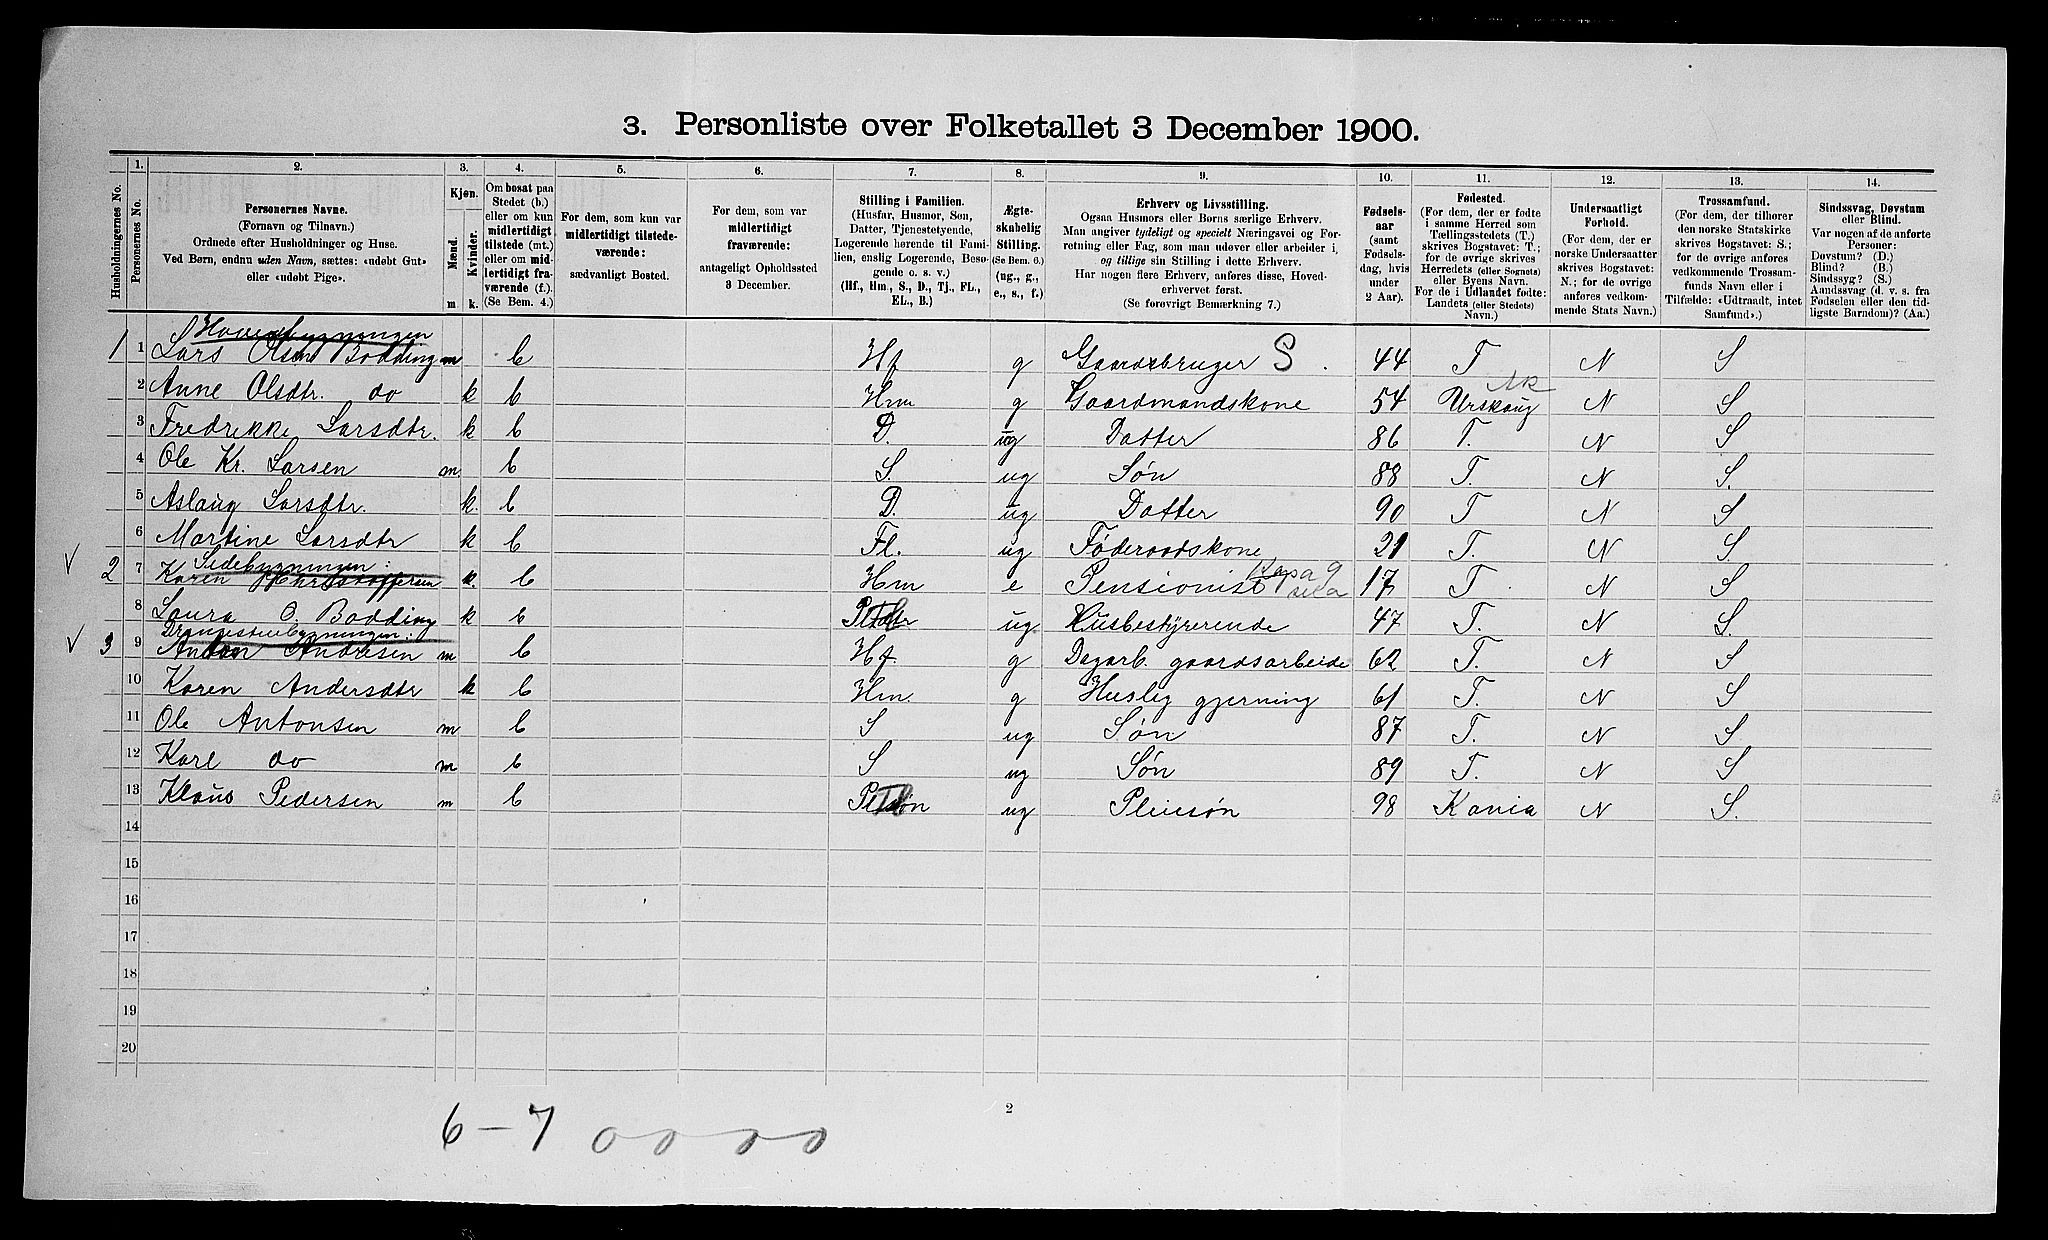 3. Personliste over Folketallet 3 December 1900.
1. 2. 3. 4. 5. 6. 7. 8. 9. 10. 11. 12. 13. 14.
Husholdningernes No.
Personernes No.
Personernes Navne.
(Fornavn og Tilnavn.)
Ordnede efter Husholdninger og Huse.
Ved Børn, endnu uden Navn, sættes: «udøbt Gut»
eller «udøbt Pige».
Kjøn.
Mænd.
Kvinder.
m. k.
Om bosat paa
Stedet (b.)
eller om kun
midlertidigt
tilstede (mt.)
eller om mid-
lertidigt fra-
værende (f.).
(Se Bem. 4.)
For dem, som kun var
midlertidigt tilstede-
værende:
sædvanligt Bosted.
For dem, som var
midlertidigt
fraværende:
antageligt Opholdssted
3 December.
Stilling i Familien.
(Husfar, Husmor, Søn,
Datter, Tjenestetyende,
Logerende hørende til Fami-
lien, enslig Logerende, Besø-
gende o. s. v.)
(Hf., Hm., S., D., Tj., FL.,
EL., B.)
Ægte-
skabelig
Stilling.
(Se Bem. 6.)
(ug., g.,
e., s., f.)
Erhverv og Livsstilling.
Ogsaa Husmors eller Børns særlige Erhverv.
Man angiver tydeligt og specielt Næringsvei og For-
retning eller Fag, som man udøver eller arbeider i,
og tillige sin Stilling i dette Erhverv.
Har nogen flere Erhverv, anføres disse, Hoved-
erhvervet først.
(Se forøvrigt Bemærkning 7.)
Fødsels-
aar
(samt
Fødsels-
dag, hvis
under
2 Aar).
Fødested.
(For dem, der er fødte
i samme Herred som
Tællingsstedets (T.)
skrives Bogstavet: T.;
for de øvrige skrives
Herredets (eller Sognets)
eller Byens Navn.
For de i Udlandet fødte:
Landets (eller Stedets)
Navn.)
Undersaatligt
Forhold.
(For dem, der er
norske Undersaatter
skrives Bogstavet:
N.; for de øvrige
anføres vedkom-
mende Stats Navn.)
Trossamfund.
(For dem, der tilhører
den norske Statskirke
skrives Bogstavet: S.;
for de øvrige anføres
vedkommende Trossam-
funds Navn eller i
Tilfælde: «Udtraadt, intet
Samfund».)
Sindssvag, Døvstum
eller Blind.
Var nogen af de anførte
Personer:
Døvstum? (D.)
Blind? (B.)
Sindssyg? (S.)
Aandssvag (d. v. s. fra
Fødselen eller den tid-
ligste Barndom)? (Aa.)
1 1 Lars Olsen Bødding m b Hf g Gaardbruger S 44 T N S
2 Anne Olsdtr. do k b Hm g Gaardmandskone 54 Urskoug Ak N S
3 Fredrikke Larsdtr. k b D. ug Datter 86 T. N S
4 Ole Kr. Larsen m b S. ug Søn 88 T. N S.
5 Aslaug Larsdtr. k. b D. ug Datter 90 T N S
6 Martine Larsdtr k b Fl. ug Føderaadskone 21 T. N S.
Sidebygningen:
2 7 Karen Christoffersen k. b Hm e Pensionist 17 T N S
8 Laura O. Bødding k b ug. Husbestyrerende 47 T. N S.
Drengestuebygningen:
3 9 Anton Andresen m b Hf. g Dagarb. gaardsarbeide 62 T. N S
10 Karen Andersdtr k b Hm. g Huslig gjerning 61 T. N S
11 Ole Antonsen m b S ug Søn 87 T. N S
12 Karl do m b S ug Søn 89 T. N S
13 Klaus Pedersen m b ug Pleiesøn 98 N S.
14
15
16
17
18
19
20
2
6-7 0 0 0 0